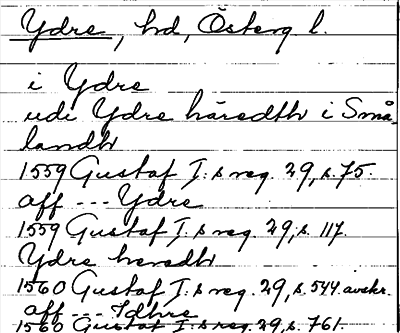 Ydre, hd, Österg l.
i Ydre
udi Ydre häredth i Små-
landh
1559 Gustaf I:s reg. 29, s. 75.
aff --- Ydre
1559 Gustaf I:s reg. 29, s. 117.
Ydre heredh
1560 Gustaf I:s reg. 29, s. 544. avskr.
aff --- Ydhre
1560 Gustaf I:s reg. 29, s. 761.